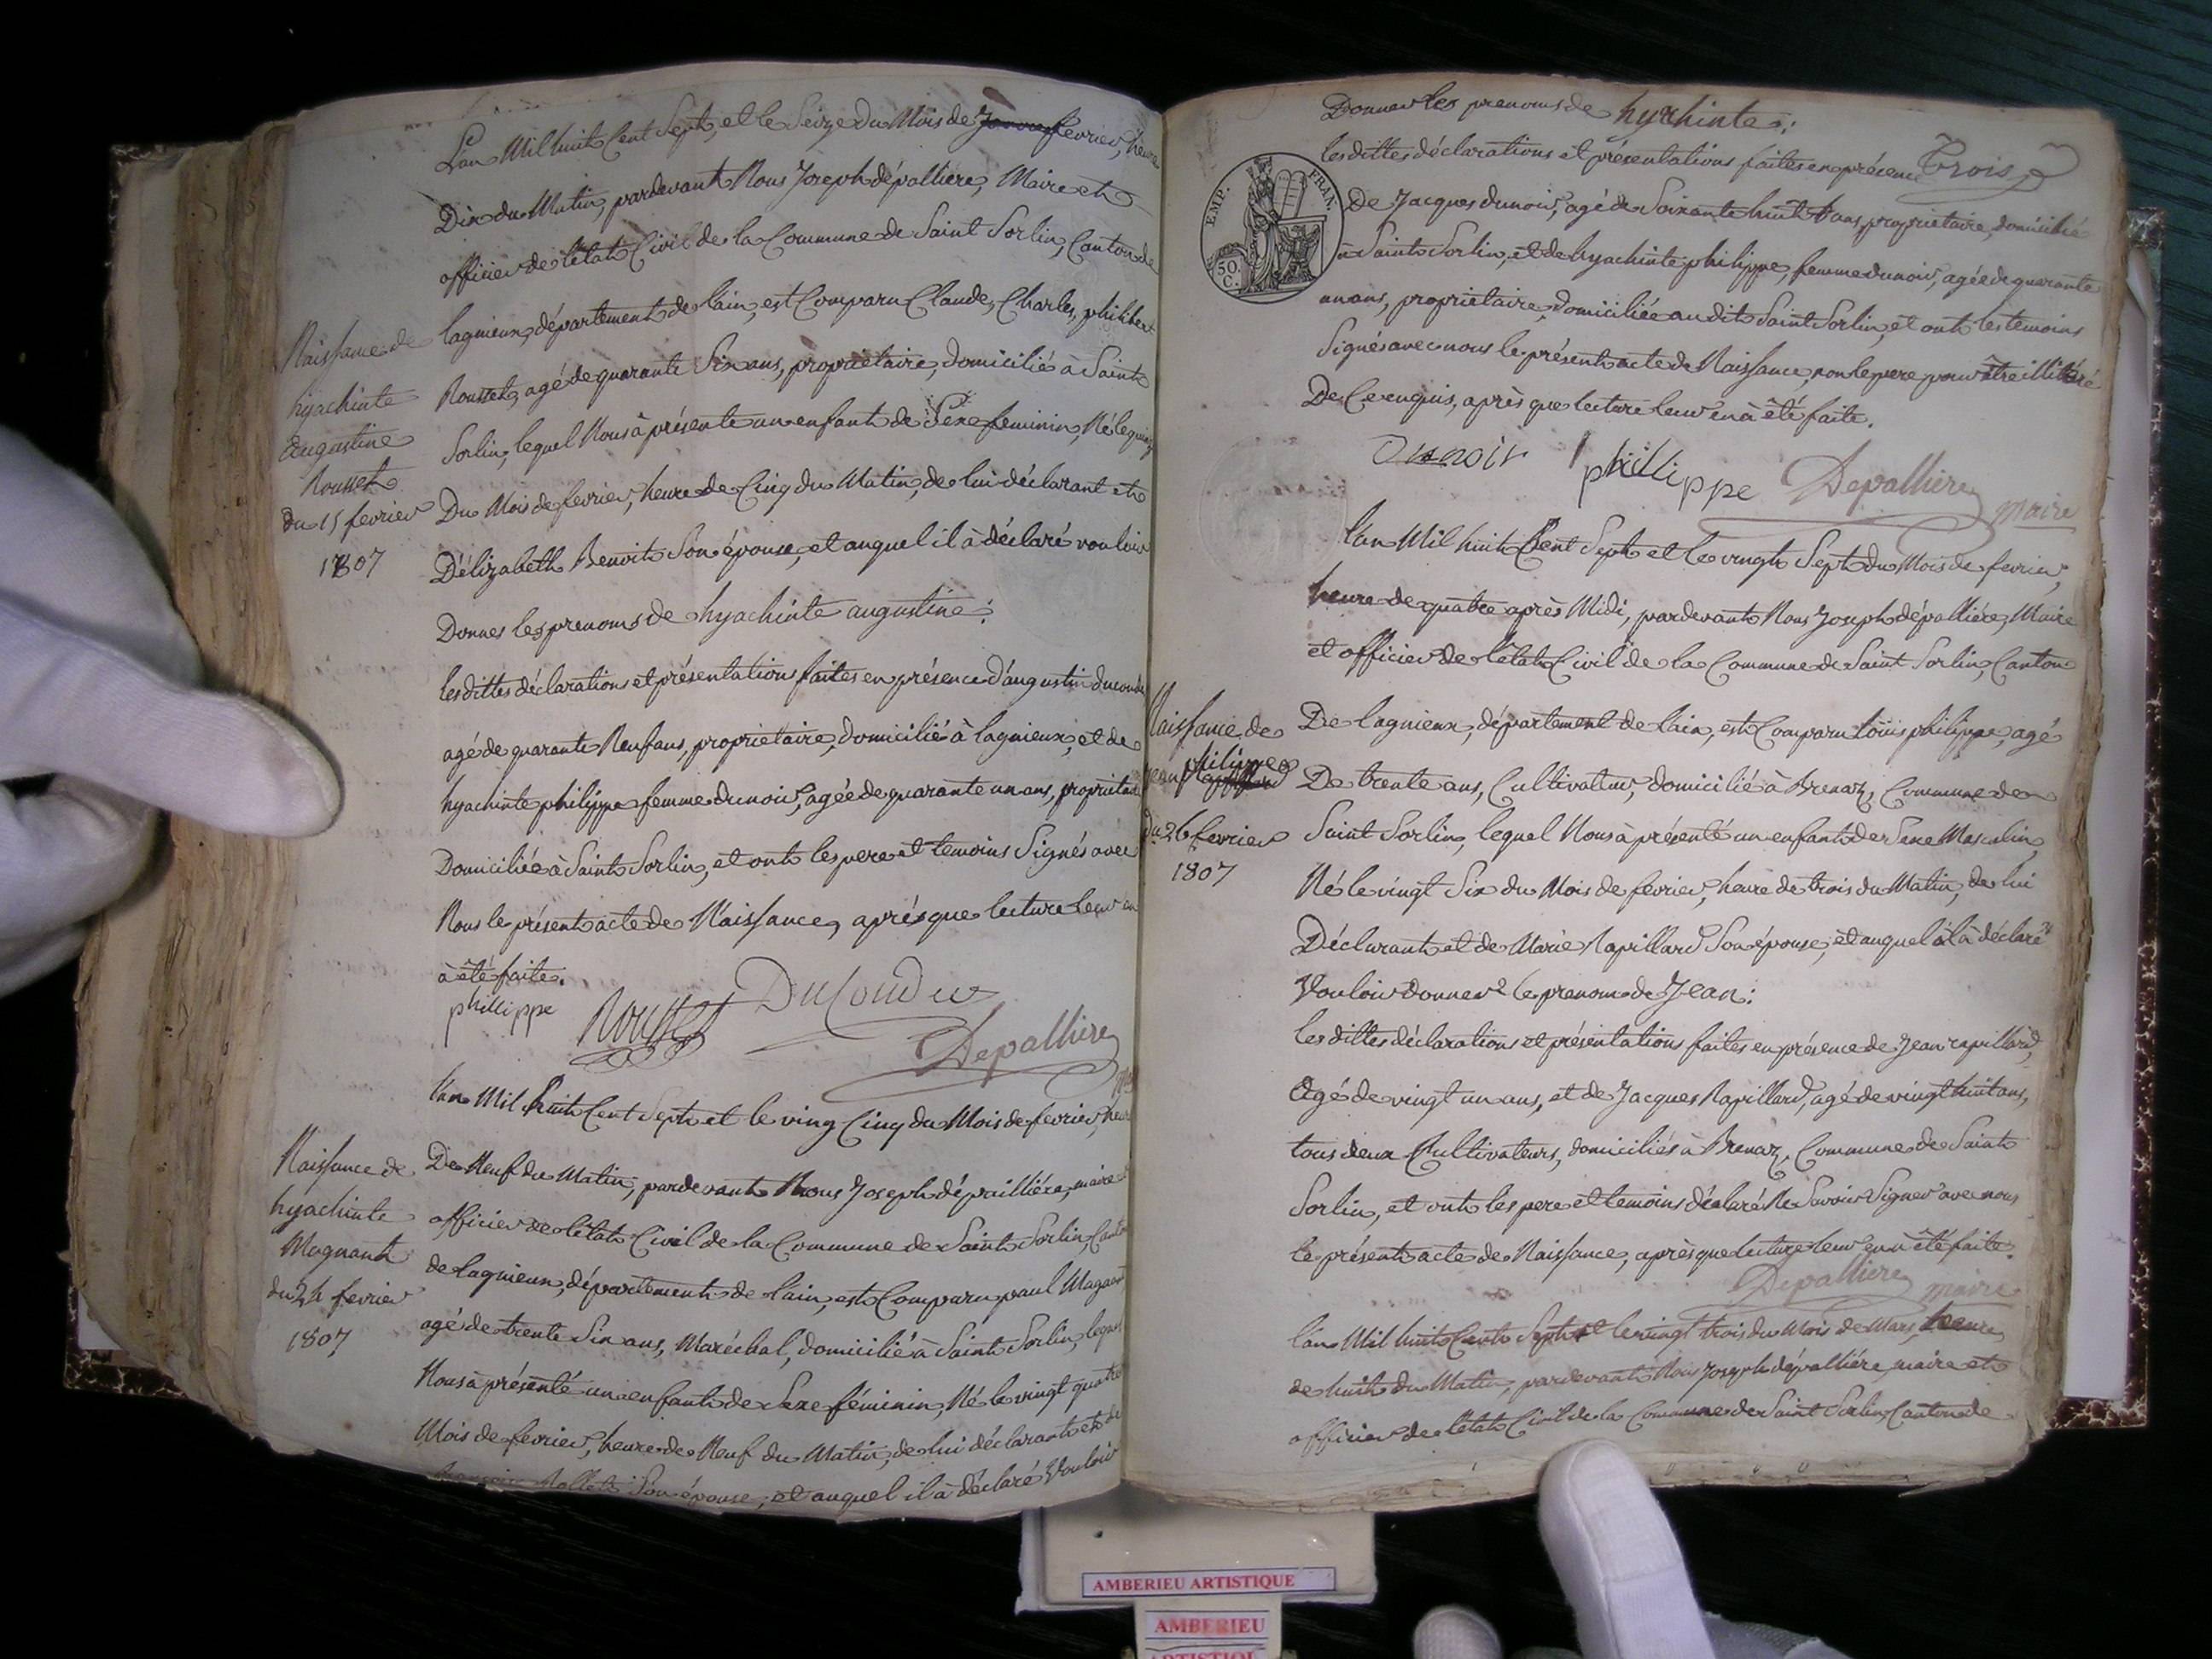 L'an Mil huit Cent Sept, et le Seize du Mois de fevrier, heure
Dix du Matin, pardevant Nous Joseph dépallière, Maire et
officier de l'état Civil de la Commune de Saint Sorlin, Canton de
lagnieux, département de l'ain, est Comparu Claude, Charles, philibert
Rousset, agé de quarante Six ans, propriétaire, domicilié à Saint
Sorlin, lequel Nous à présenté un enfant de Sexe feminin, Né le quinze
Du Mois de fevrier, heure de Cinq du Matin, de lui déclarant et
D'élizabeth Benoit Son épouse, et auquel il à déclaré vouloir
Donner les prenoms de hyachinte augustine:
les dittes déclarations et présentations faites en présence d'augustin
agé de quarante Neuf ans, propriétaire, domicilié à lagnieux, et de
hyachinte philippe femme dunoir, agée de quarante un ans, propriétaire
Domiciliée à Saint Sorlin, et ont les pere et temoins Signés avec
Nous le présent acte de Naissance, après que lecture leur en
à été faite.
phillippe Rousset
Depalliere
Naissance de
hyachinte
augustine
Rousset
du 15 fevrier
1807
L'an Mil huit Cent Sept et le vingt Cinq du Mois de fevrier, heure
De Neuf du Matin, pardevant Nous Joseph dépallière, maire
officier de l'état Civil de la Commune de Saint Sorlin, Canton
de lagnieux, département de l'ain, est Comparu paul Magnant
agé de trente Six ans, Maréchal, domicilié à Saint Sorlin, lequel
Nous à présenté un enfant de Sexe féminin, Né le vingt quatre
Mois de fevrier, heure de Neuf du Matin, de lui déclarant et de
Son épouse, et auquel il à déclaré Vouloir
Naissance de
hyachinte
Magnant
du 24 fevrier
1807
Donner les prenoms de hyachinte:
les dittes déclarations et présentations faites en présence
Trois
EMP. FRAN.
50. C.
De Jacques dunoir, agé de Soixante huit ans, propriétaire, domicilié
à Saint Sorlin, et de hyachinte philippe, femme dunoir, agée de quarante
un ans, propriétaire, domiciliée au dit Saint Sorlin, et ont les temoins
Signés avec nous le présent acte de Naissance, non le pere pour être illitéré
De Ce enquis, après que lecture leur en à été faite.
Dunoir phillippe Depalliere maire
L'an Mil huit Cent Sept et le vingt Sept du Mois de fevrier,
heure de quatre après Midi, pardevant Nous Joseph dépallière, Maire
et officier de l'état Civil de la Commune de Saint Sorlin, Canton
De lagnieux, département de l'ain, est Comparu Loüis philippe, agé
De trente ans, Cultivateur, domicilié à Brenaz, Commune de
Saint Sorlin, lequel Nous à présenté un enfant de Sexe Masculin,
Né le vingt Six du Mois de fevrier, heure de trois du Matin, de lui
Déclarant et de Marie Rapillard Son épouse, et auquel il à déclaré
Vouloir donner le prenom de Jean:
les dittes déclarations et présentations faites en présence de Jean rapillard,
Agé de vingt un ans, et de Jacques Rapillard, agé de vingt huit ans,
tous deux Cultivateurs, domiciliés à Brenaz, Commune de Saint
Sorlin, et ont les pere et temoins déclaré Ne Savoir Signer avec nous
le présent acte de Naissance, après que lecture leur en à été faite.
Depalliere maire
Naissance de
jean philippe
du 26 fevrier
1807
L'an Mil huit Cent Sept et le vingt trois du Mois de Mars, heure
de huit du Matin, pardevant Nous Joseph dépallière, maire et
officier de l'état Civil de la Commune de Saint Sorlin, Canton de
AMBERIEU ARTISTIQUE
AMBERIEU
ARTISTIQUE